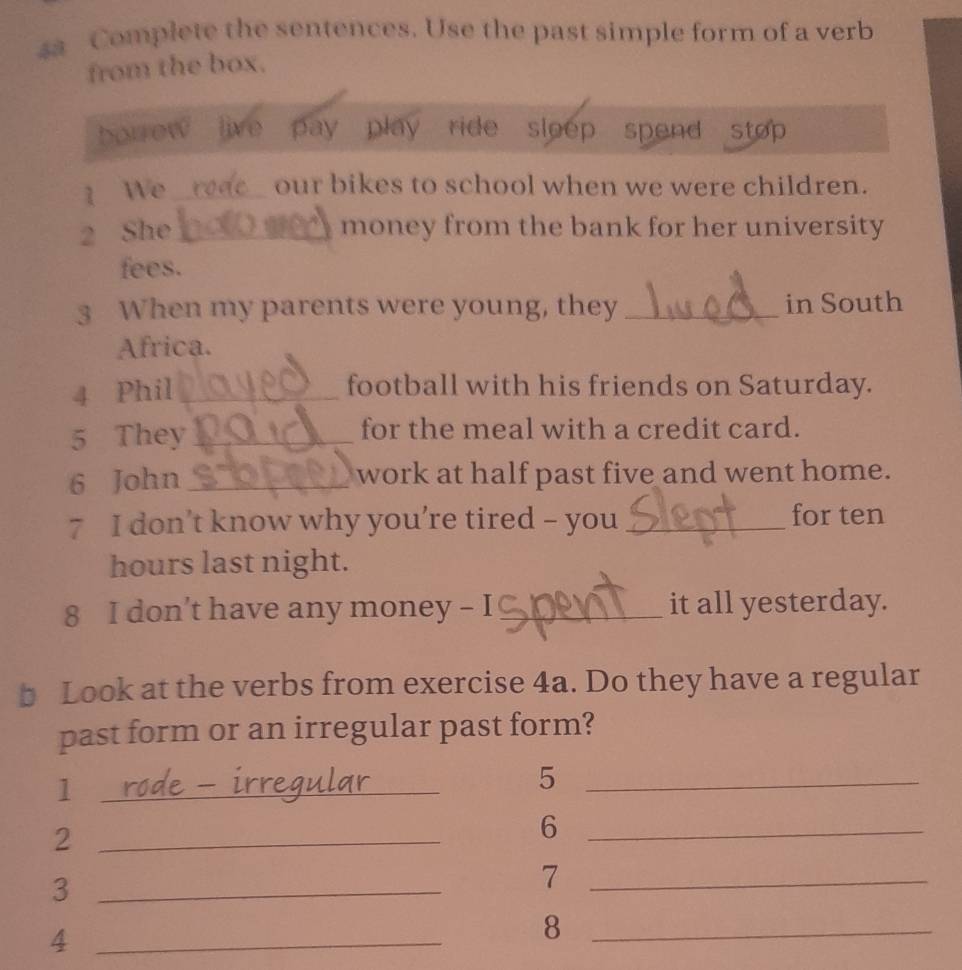 4a Complete the sentences. Use the past simple form of a verb
from the box.
borrow live pay play ride sleep spend stop
1 We rode our bikes to school when we were children.
2 She borrowed money from the bank for her university
fees.
3 When my parents were young, they lived in South
Africa.
4 Phil played football with his friends on Saturday.
5 They paid for the meal with a credit card.
6 John stopped work at half past five and went home.
7 I don't know why you're tired – you slept for ten
hours last night.
8 I don't have any money – I spent it all yesterday.
b Look at the verbs from exercise 4a. Do they have a regular
past form or an irregular past form?
1 rode – irregular 5
2 6
3 7
4 8